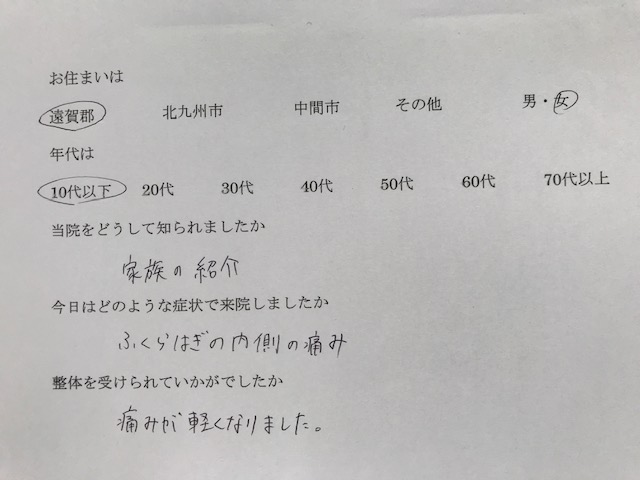 お住まいは
遠賀郡 北九州市 中間市 その他 男・女
年代は
10代以下 20代 30代 40代 50代 60代 70代以上
当院をどうして知られましたか
家族の紹介
今日はどのような症状で来院しましたか
ふくらはぎの内側の痛み
整体を受けられていかがでしたか
痛みが軽くなりました。